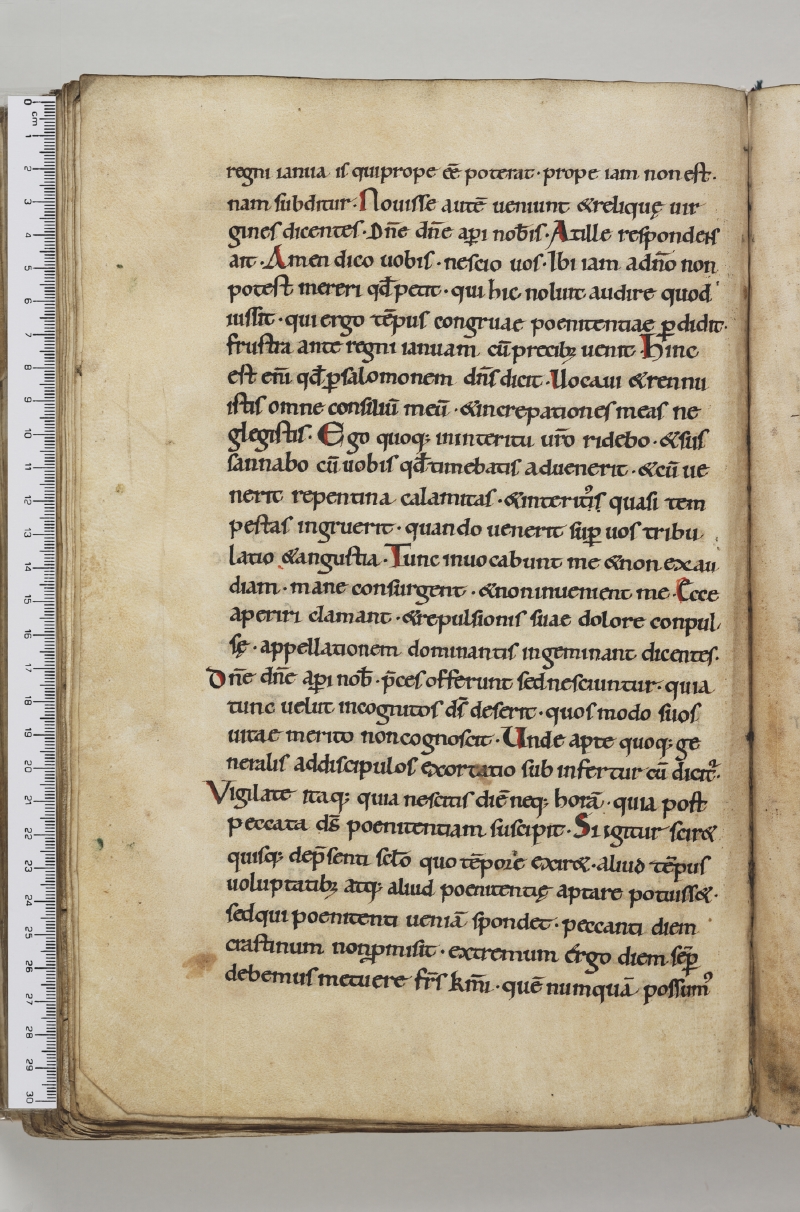 regni ianua is qui prope eē poterat · prope iam non est ·
nam subditur · Nouisse autē ueniunt &relique uir
gines dicentes · Dn̄e dn̄e api nobis · At ille respondens
ait · Amen dico uobis · nescio uos · Ibi iam adn̄o non
potest mereri qd̄ petit · qui hic noluit audire quod
iussit · qui ergo tēpus congruae poenitentiae ꝑdidit ·
frustra ante regni ianuam cū precibꝫ uenit · Hinc
est eni̅ qd̄ ꝑ salomonem dn̄s dicit · Uocaui &rennu
istis omne consiliū meū · &increpationes meas ne
glegistis · Ego quoqꝫ ininteritu ur̄o ridebo · &sub
sannabo cū uobis qd̄ timebatis aduenerit · &cū ue
nerit repentina calamitas · &interitꝰ is quasi tem
pestas ingruerit · quando uenerit suꝑ uos tribu
latio &angustia · Tunc inuocabunt me &non exau
diam · mane consurgent · &non inuenient me · Ecce
aperiri clamant · &repulsionis suae dolore conpul
sę · appellationem dominantis ingeminant dicentes ·
Dn̄e dn̄e api nob̄ · p̄ces offerunt sed nesciuntur · quia
tunc uelut incognitos ds̄ deserit · quos modo suos
uitae merito non cognoscit · Unde apte quoqꝫ ge
neralis addiscipulos exortatio sub infertur cū dicit᷑ ·
Vigilate itaqꝫ quia nescitis diē neqꝫ horā · quia post
peccata ds̄ poenitentiam suscipit · Si igitur scir&
quisqꝫ dep̄senti scl̄o quo tēpore exir& · aliud tēpus
uoluptatibꝫ atqꝫ aliud poenitentię aptare potuiss& ·
sed qui poenitenti ueniā spondet · peccanti diem
crastinum non ꝓmisit · extremum ergo diem sēꝑ
debemus metuere fr̄s km̄i · quē numquā possumꝰ